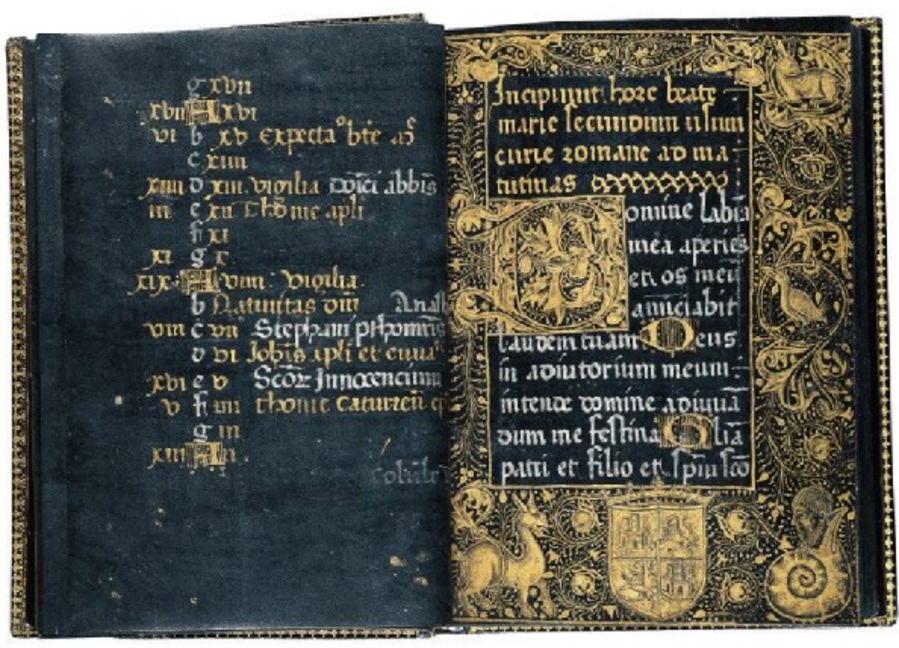 g xvii
xvii A xvi
vi b xv Expectaº bte
c xiiii
xiiii d xiii vigilia abbis
iii e xii Thome apli
f xi
xi g x
xix A viiii vigilia
b Natiuitas dni
viii c vii Stephani
d vi Johis apli et euua
xvi e v Scoz Innocencium
v f iiii thome
g iii
xiii A ii
Incipiunt hore beate
marie secundum usum
curie romane ad ma
tutinas
Domine labia
mea aperies
et os meū
anūciabit
laudem tuam Deus
in adiutorium meum
intende domine adiuuā
dum me festina Gliā
patri et filio et spiui scō